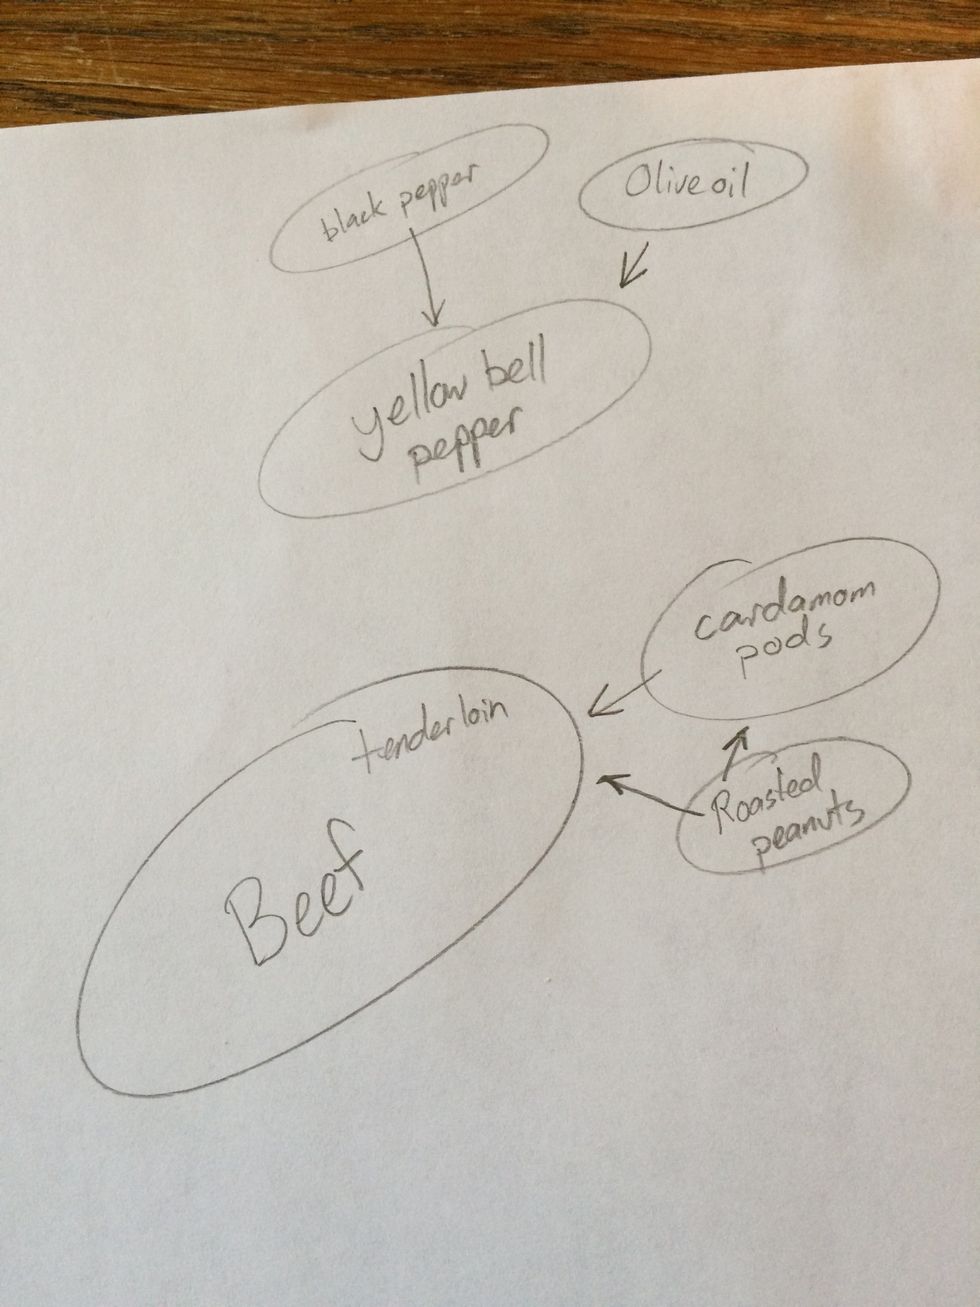 black pepper
Olive oil
yellow bell
pepper
cardamom
pods
tenderloin
Beef
Roasted
peanuts